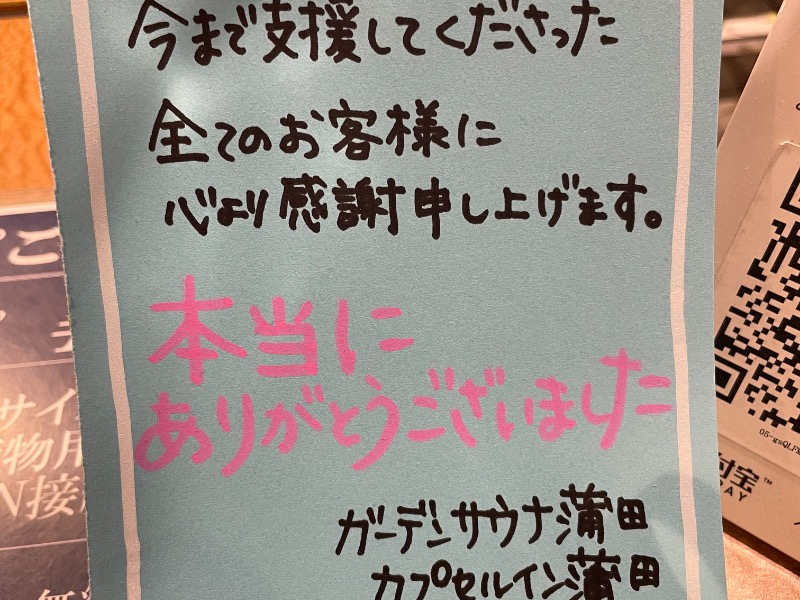 今まで支援してくださった
全てのお客様に
心より感謝申し上げます。
本当に
ありがとうございました
ガーデンサウナ蒲田
カプセルイン蒲田
サイ
物用
N接
付宝™
PAY